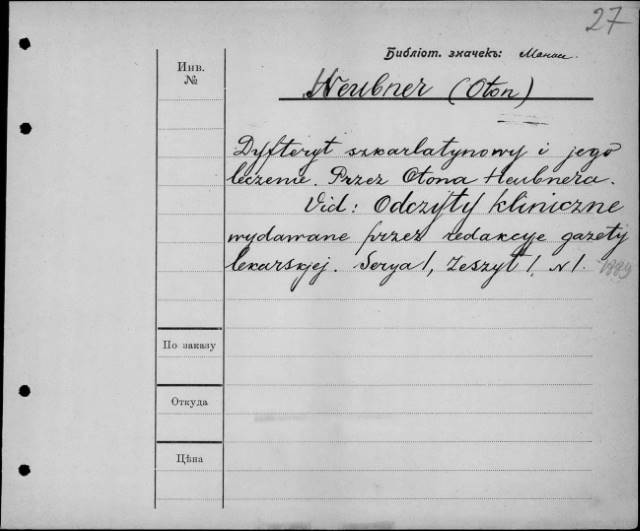 27
Библіот. значекъ:
Инв.
№
Heubner (Oton)
Dyfteryt szkarlatynowy i jego
leczenie. Przez Otona Heubnera.
Vid: Odczyty kliniczne
wydawane przez redakcyje gazety
lekarskjej. Serya I, Zeszyt I. N 1. 1889
По заказу
Откуда
Цѣна